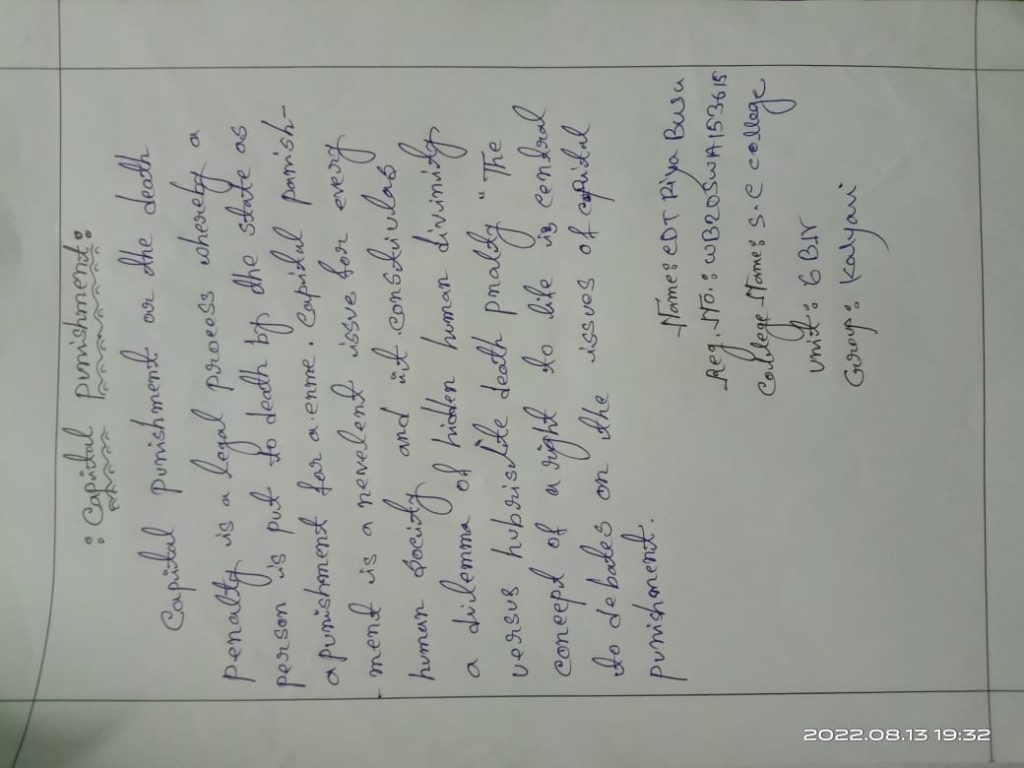 : Capital punishment :
Capital punishment or the death
penalty is a legal process whereby a
person is put to death by the state as
a punishment for a crime. Capital punish-
ment is a nevelent issue for every
human socity and it constivulas
a dilemma of hidden human divinity
versus hubrisite death pnality "The
concept of a right to life is central
to debates on the issues of capital
punishment.
Name: CDT Riya Basu
Reg. No.: WB20SWA153615
College Name: S.C College
Unit: 6 BN
Group: Kalyani
2022.08.13 19:32